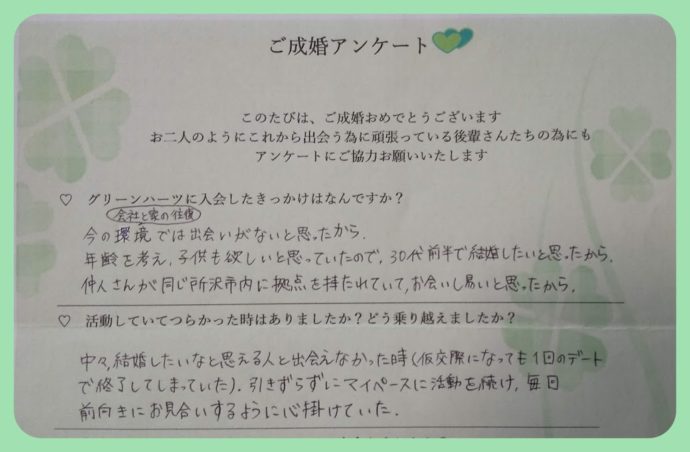 ご成婚アンケート
このたびは、ご成婚おめでとうございます
お二人のようにこれから出会う為に頑張っている後輩さんたちの為にも
アンケートにご協力お願いいたします
♡ グリーンハーツに入会したきっかけはなんですか？
会社と家の往復
今の環境では出会いがないと思ったから.
年齢を考え,子供も欲しいと思っていたので,30代前半で結婚したいと思ったから.
仲人さんが同じ所沢市内に拠点を持たれていて,お会いし易いと思ったから.
♡ 活動していてつらかった時はありましたか？どう乗り越えましたか？
中々,結婚したいなと思える人と出会えなかった時(仮交際になっても1回のデート
で終了してしまっていた).引きずらずにマイペースに活動を続け,毎日
前向きにお見合いするように心掛けていた.